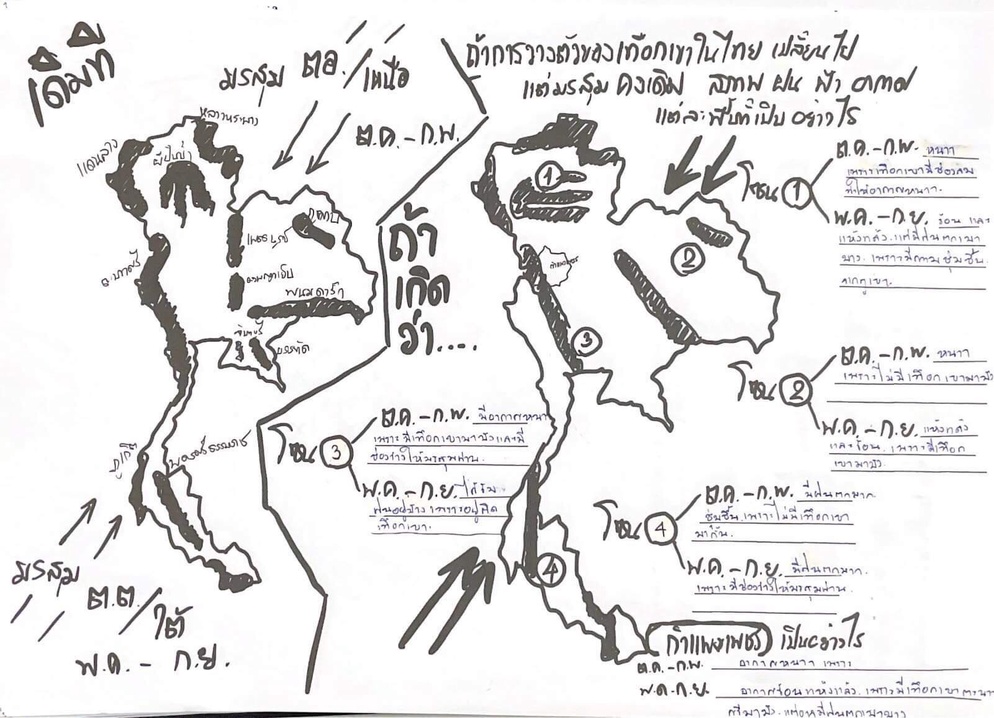 เดิมที
มรสุม ตอ./เหนือ
ต.ค. - ก.พ.
หลวงพระบาง
แดนลาว
ผีปันน้ำ
ภูพาน
เพชรบูรณ์
ตะนาวศรี
ดงพญาเย็น
พนมดงรัก
จันทบุรี
บรรทัด
ภูเก็ต
นครศรีธรรมราช
มรสุม
ต.ต./ใต้
พ.ค. - ก.ย.
ถ้า
เกิด
ว่า....
ถ้าการวางตัวของเทือกเขาในไทย เปลี่ยนไป
แต่มรสุม คงเดิม สภาพ ฝน ฟ้า อากาศ
แต่ละพื้นที่เป็น อย่างไร
1
2
3
4
กำแพงเพชร
โซน 1
ต.ค. - ก.พ. หนาว
เพราะเทือกเขามีช่องลม
ทำให้อากาศหนาว.
พ.ค. - ก.ย. ร้อน และ
แห้งแล้ง. แต่มีฝนตกมา
บาง. เพราะมีความชุ่มชื้น
จากภูเขา.
โซน 2
ต.ค. - ก.พ. หนาว
เพราะไม่มีเทือกเขามาบัง
พ.ค. - ก.ย. แห้งแล้ง
และร้อน. เพราะมีเทือก
เขามาบัง.
โซน 3
ต.ค. - ก.พ. มีอากาศหนาว
เพราะมีเทือกเขามาบังและมี
ช่องว่างให้มรสุมผ่าน.
พ.ค. - ก.ย. ได้รับ
ฝนอยู่บ้าง เพราะอยู่ติด
เทือกเขา.
โซน 4
ต.ค. - ก.พ. มีฝนตกมาก
ชุ่มชื้น. เพราะไม่มีเทือกเขา
มากั้น.
พ.ค. - ก.ย. มีฝนตกมาก.
เพราะมีช่องว่างให้มรสุมผ่าน.
กำแพงเพชร เป็นอย่างไร
ต.ค. - ก.พ. อากาศหนาว เพราะ
พ.ค. - ก.ย. อากาศร้อนแห้งแล้ง. เพราะมีเทือกเขาตะนาว
ศรีมาบัง. แต่